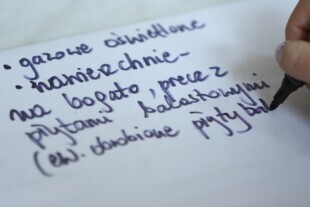 • gazowe oświetlone
• nawierzchnie -
na bogato, precz z
płytami balastowymi
(ew. obrobione płyty